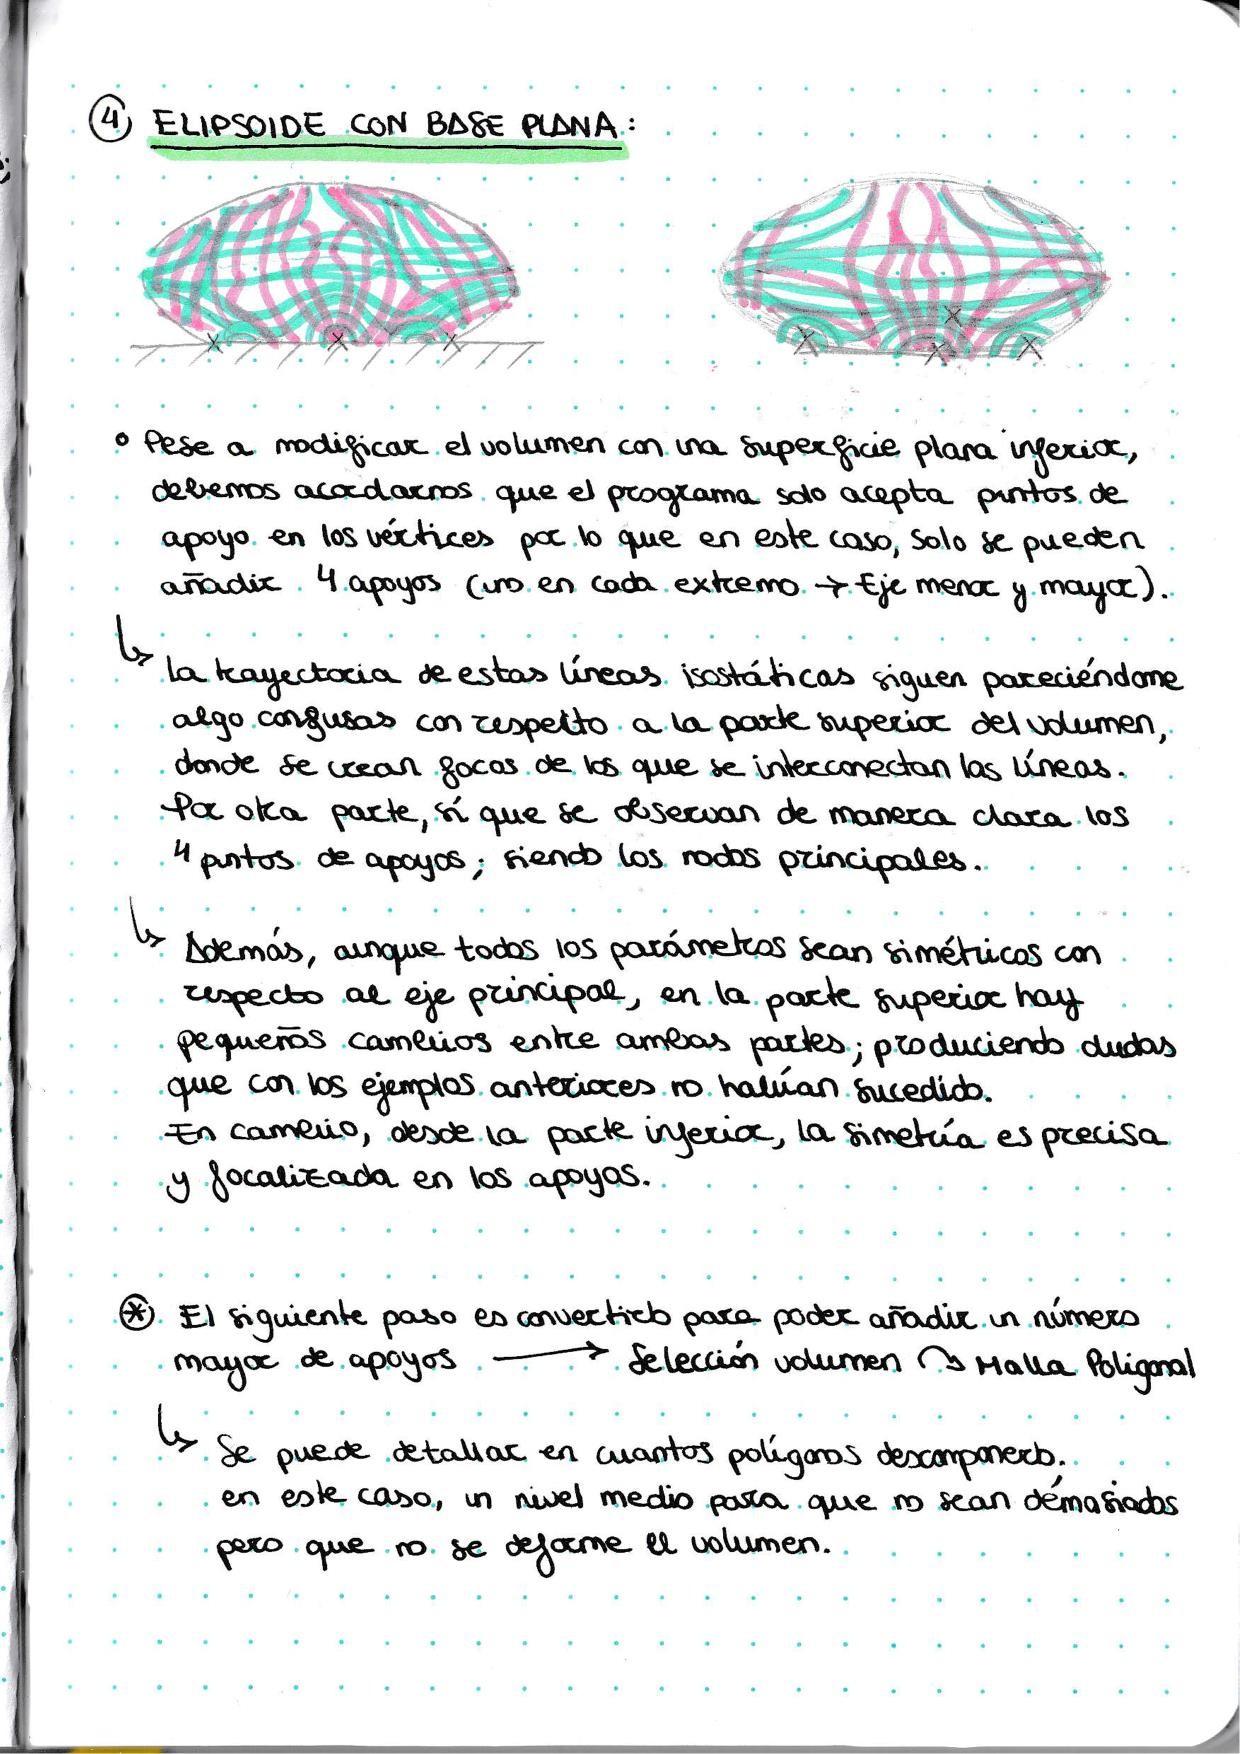 ④ ELIPSOIDE CON BASE PLANA:
° Pese a modificar el volumen con una superficie plana inferior,
debemos acordarnos que el programa solo acepta puntos de
apoyo en los vértices por lo que en este caso, solo se pueden
añadir 4 apoyos (uno en cada extremo → Eje menor y mayor).
↳ La trayectoria de estas líneas isostáticas siguen pareciéndome
algo confusas con respecto a la parte superior del volumen,
donde se crean focos de los que se interconectan las líneas.
Por otra parte, sí que se observan de manera clara los
4 puntos de apoyos; siendo los nodos principales.
↳ Además, aunque todos los parámetros sean simétricos con
respecto al eje principal, en la parte superior hay
pequeños cambios entre ambas partes; produciendo dudas
que con los ejemplos anteriores no habían sucedido.
En cambio, desde la parte inferior, la simetría es precisa
y focalizada en los apoyos.
⊛ El siguiente paso es convertirlo para poder añadir un número
mayor de apoyos → Selección volumen ↷ Malla Poligonal
↳ Se puede detallar en cuantos polígonos descomponerlo.
en este caso, un nivel medio para que no sean démasiados
pero que no se deforme el volumen.